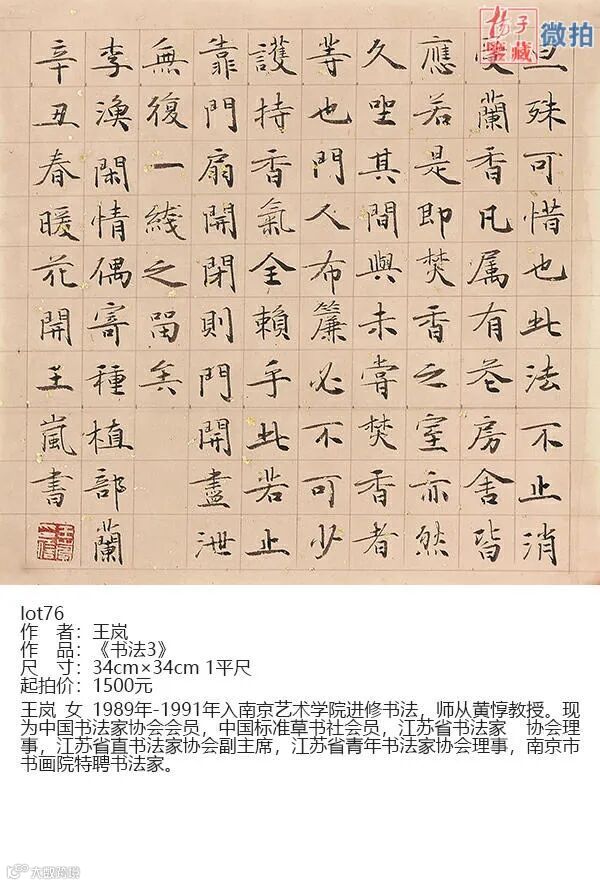 扬子鉴藏
微拍
殊可惜也此法不止消
受蘭香凡属有花房舍皆
應若是即焚香之室亦然
久坐其間與未嘗焚香者
等也門人布簾必不可少
護持香氣全賴乎此若止
靠門扇開閉則門開盡泄
無復一綫之留矣
李漁閑情偶寄種植部蘭
辛丑春暖花開王嵐書
lot76
作 者：王岚
作 品：《书法3》
尺 寸：34cm×34cm 1平尺
起拍价：1500元
王岚 女 1989年-1991年入南京艺术学院进修书法，师从黄惇教授。现
为中国书法家协会会员，中国标准草书社会员，江苏省书法家 协会理
事，江苏省直书法家协会副主席，江苏省青年书法家协会理事，南京市
书画院特聘书法家。